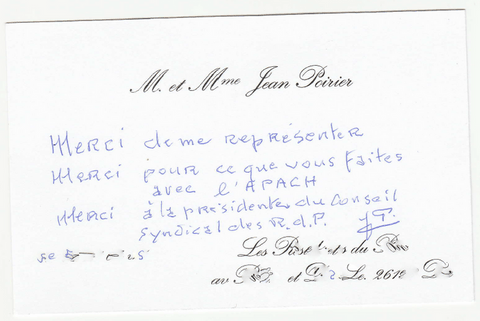 M. et Mme Jean Poirier
Merci de me représenter
Merci pour ce que vous faites
avec l'APACH
Merci à la présidente du Conseil
syndical des R.d.P. JP.
Les du
av et Le. 2612